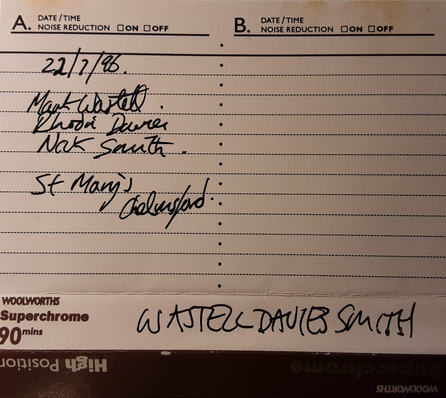 A. DATE / TIME
NOISE REDUCTION ☐ ON ☐ OFF
B. DATE / TIME
NOISE REDUCTION ☐ ON ☐ OFF
22/7/96.
Mark Wastell.
Rhodri Davies
Nick Smith.
St Mary's
Chelmsford.
WOOLWORTHS
Superchrome
90 mins
WASTELL DAVIES SMITH
High Position
Superchrome
WOOLWORTHS